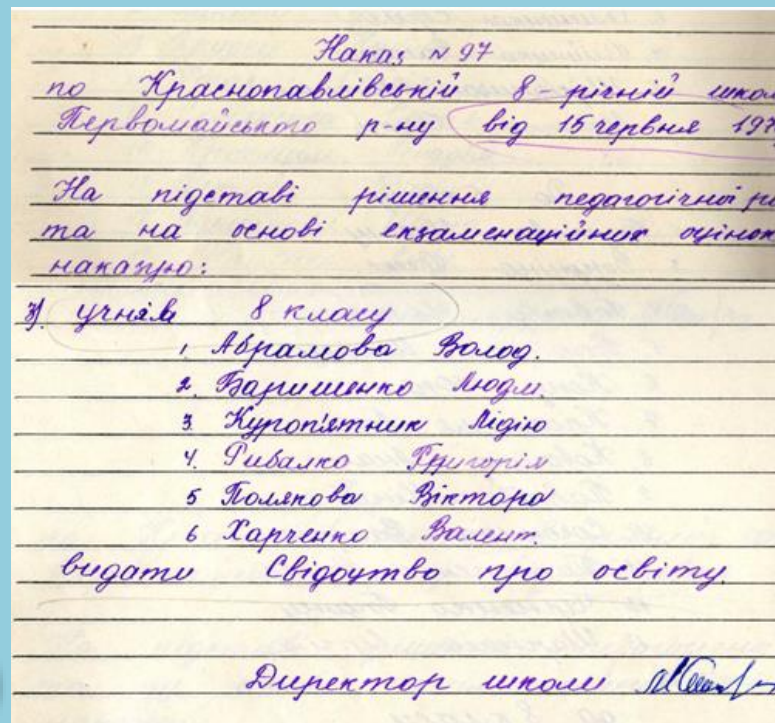 Наказ N 97
по Краснопавлівській 8-річній школ
Первомайського р-ну від 15 червня 197
На підставі рішення педагогічної р
та на основі екзаменаційних оцінок
наказую:
3). учням 8 класу
1. Абрамова Волод.
2. Баришенко Людм.
3. Куроп'ятник Лідію
4. Рибалко Григорія
5 Полякова Віктора
6 Харченко Валент.
видати Свідоцтво про освіту.
Директор школи